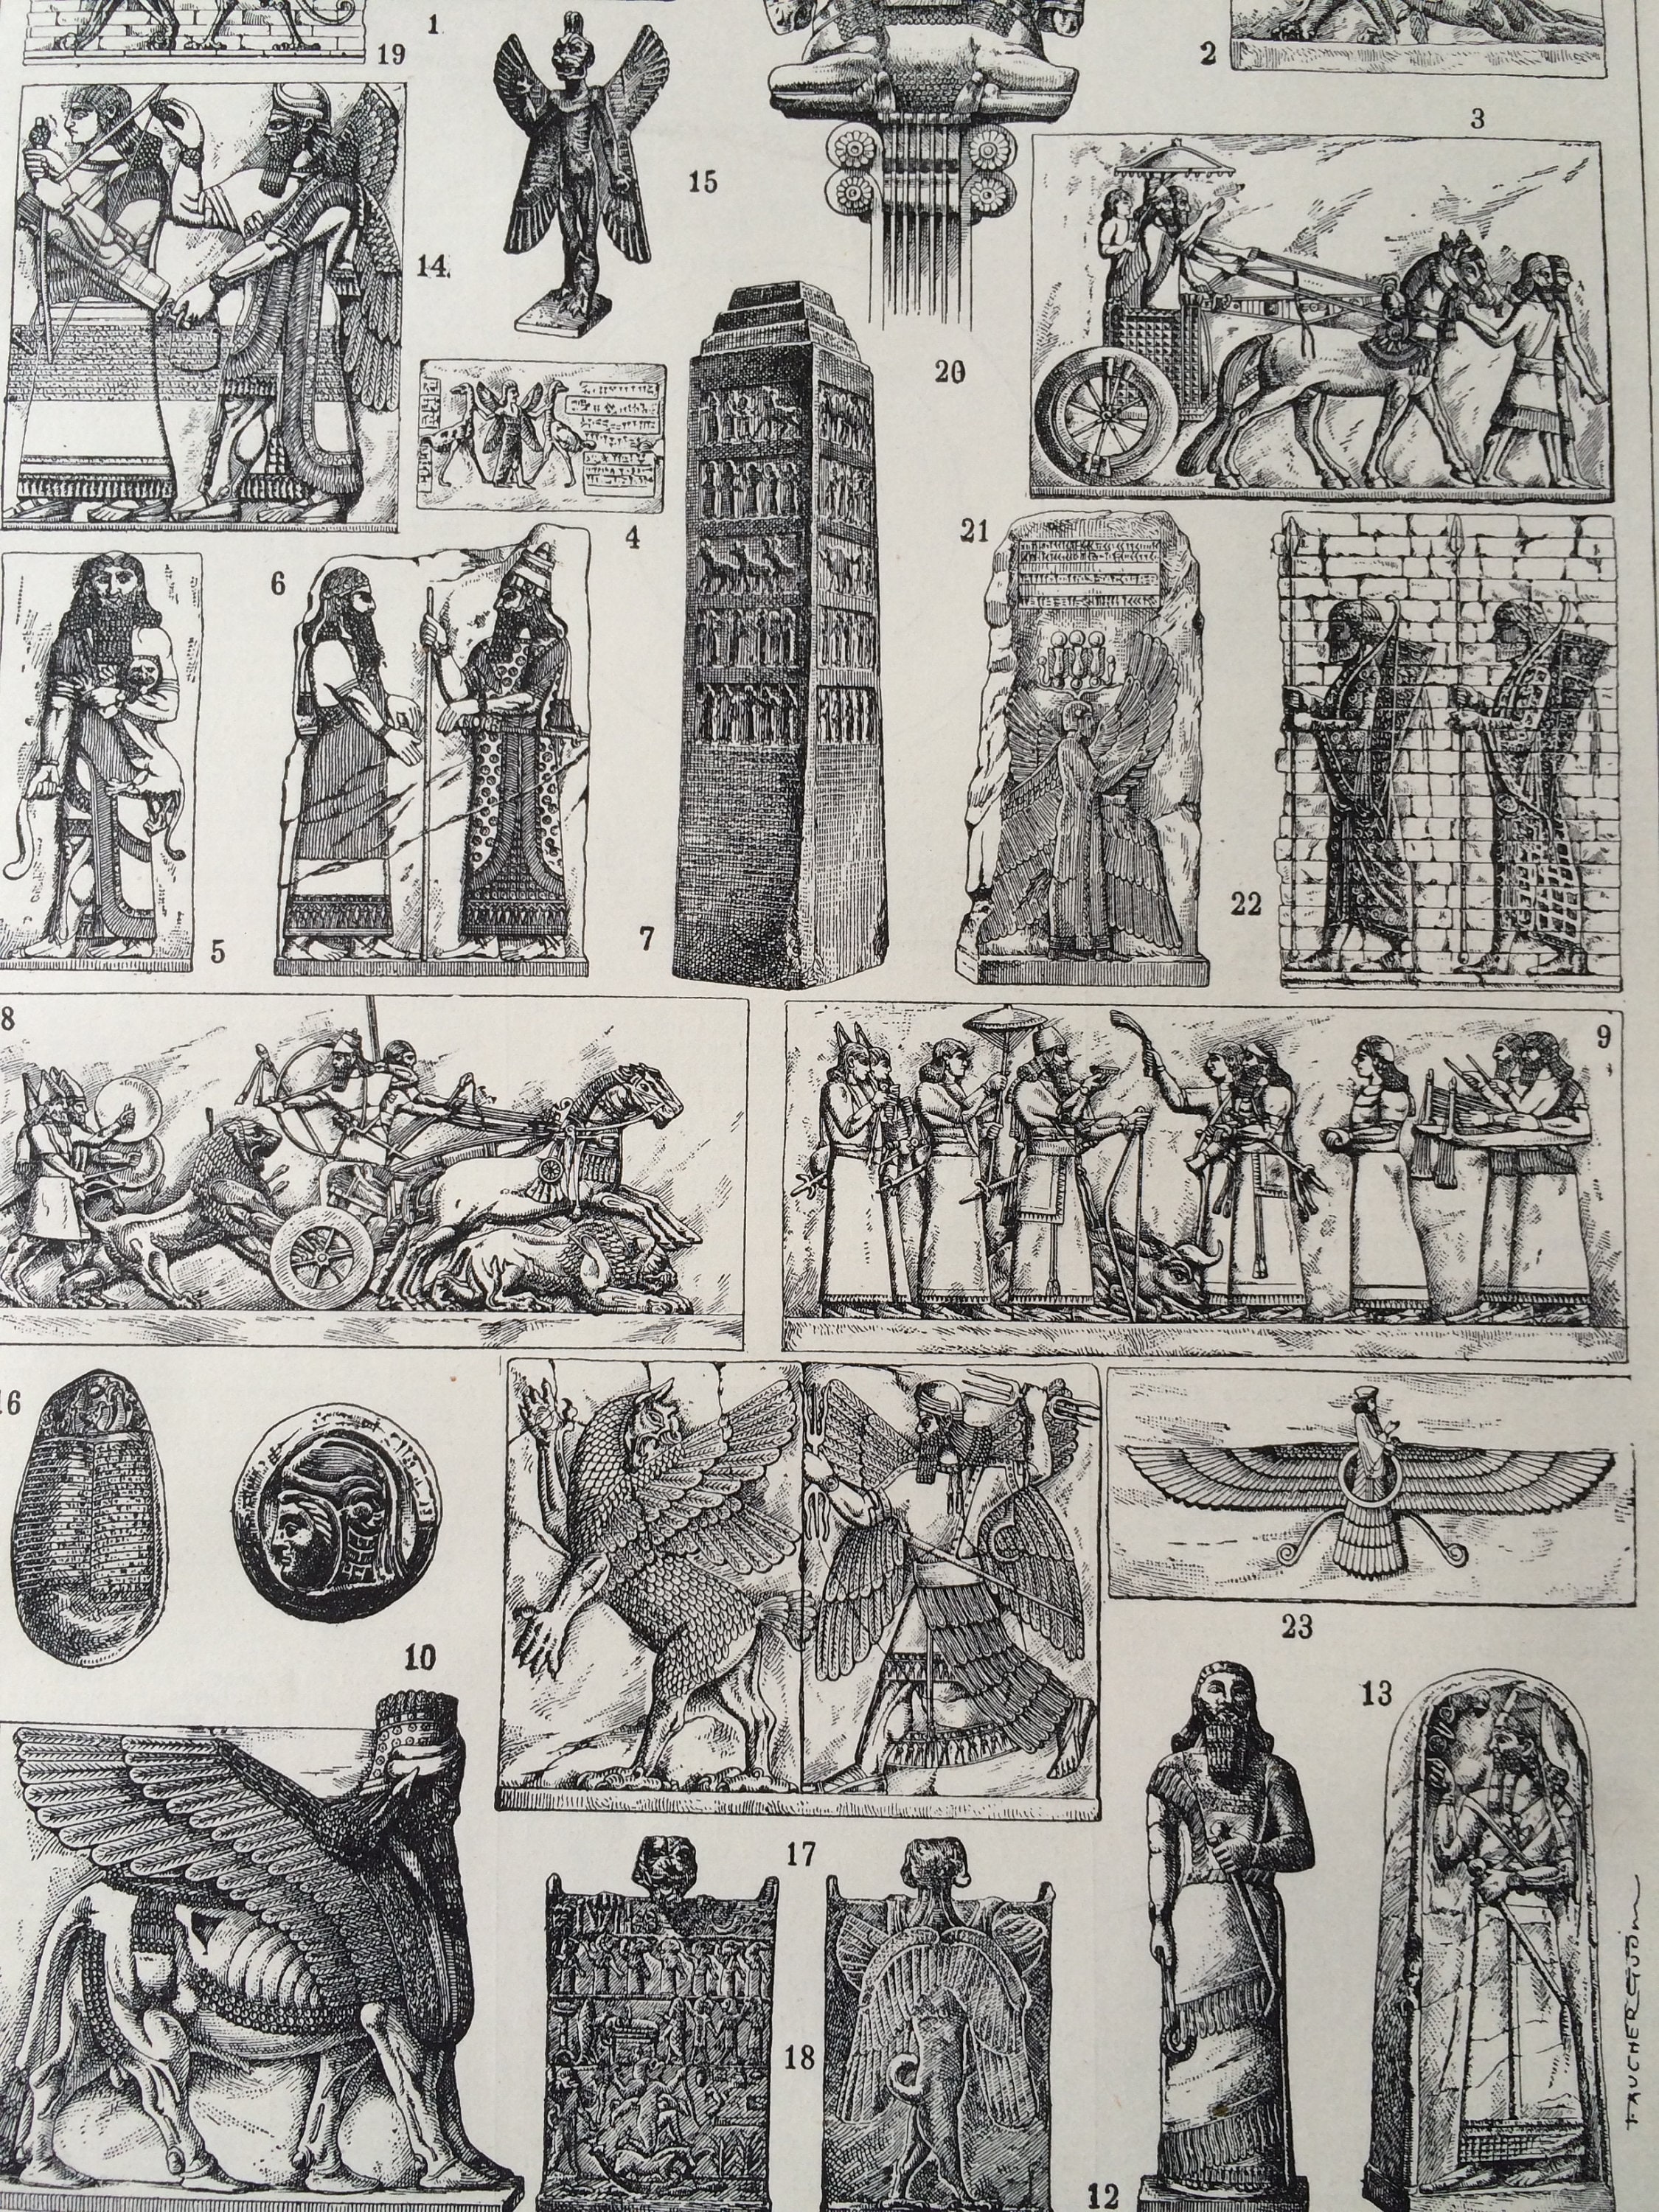 19
1
2
3
15
14.
20
4
21
6
22
5
7
8
9
16
10
23
13
17
18
12
FAUCHER GUDIN